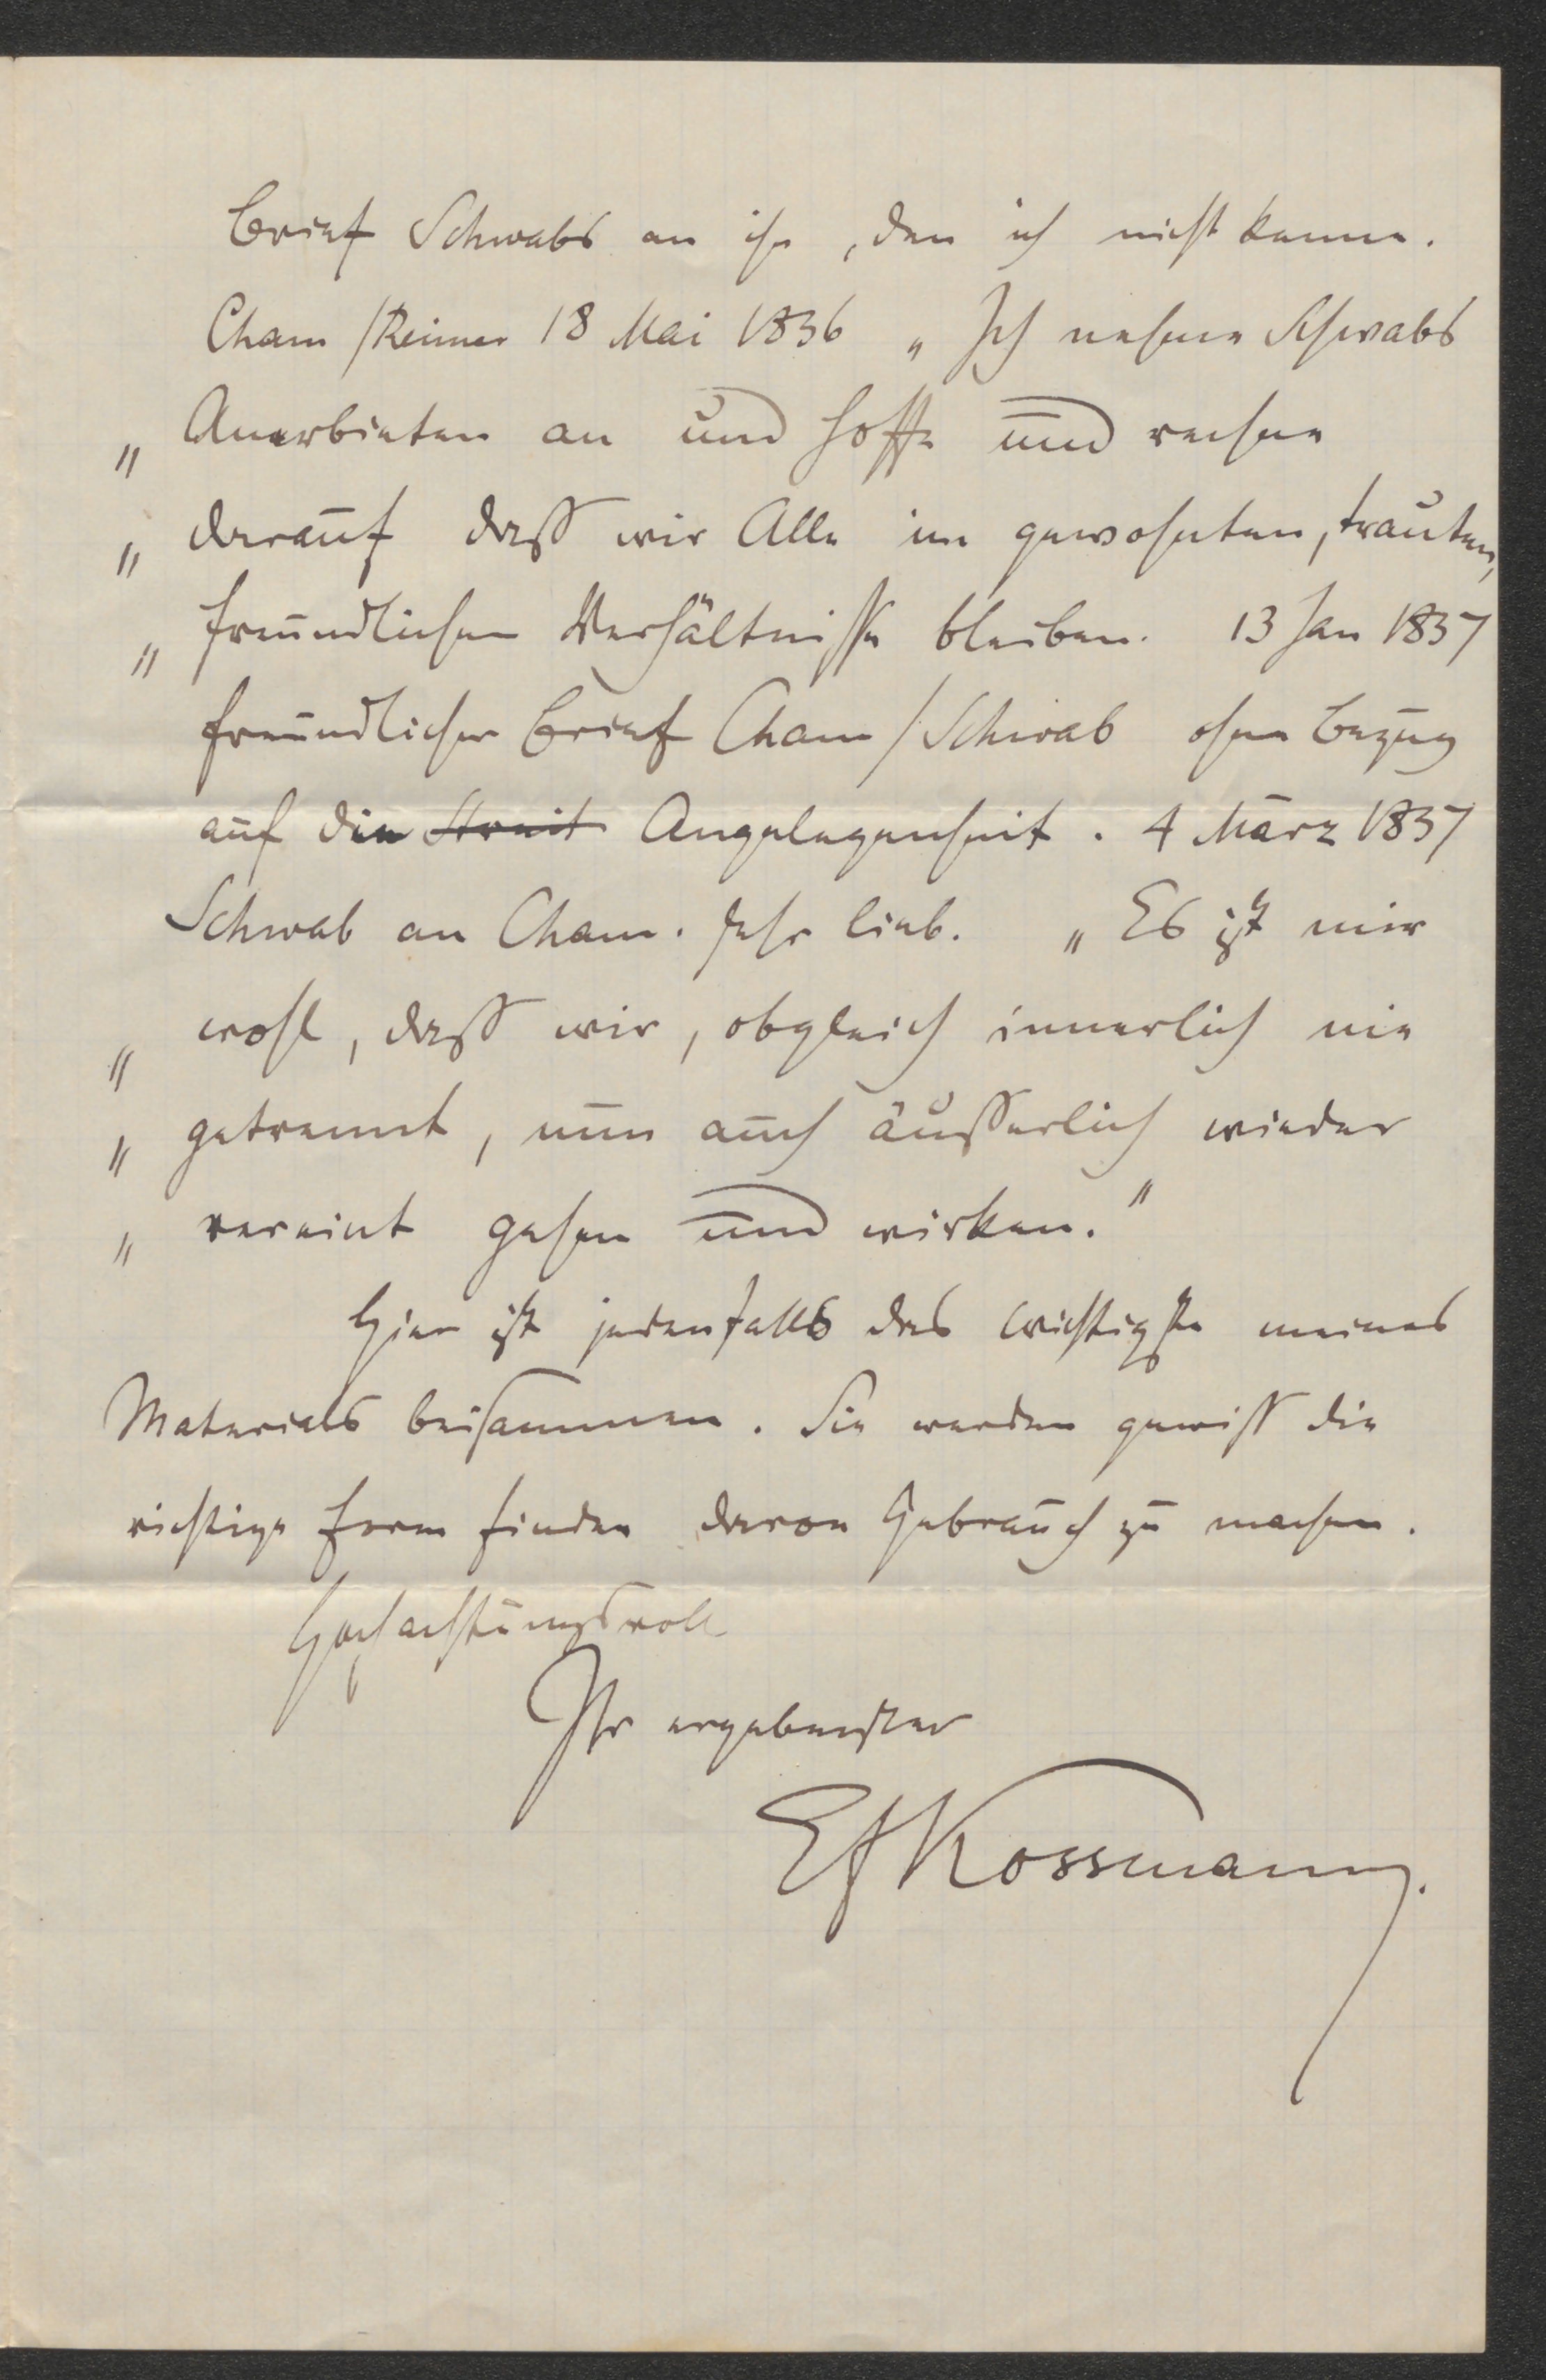 Brief Schwabs an ihn, den ich nicht kenne.
Cham/Reimer 18 Mai 1836 „Ich nehme Schwabs
„ Anerbieten an und hoffe und rechne
„ darauf dass wir Alle im gewohnten, trauten,
„ freundlichen Verhältnisse bleiben. 13 Jan 1837
freundlicher Brief Cham/Schwab ohne Bezug
auf die Streit Angelegenheit. 4 März 1837
Schwab an Cham. Sehr lieb. „Es ist mir
„ wohl, dass wir, obgleich innerlich nie
„ getrennt, nun auch äusserlich wieder
„ vereint gehen und wirken."
Hier ist jedenfalls das Wichtigste meines
Materials beisammen. Sie werden gewiss die
richtige Form finden davon Gebrauch zu machen.
Hochachtungsvoll
Ihr ergebenster
EfKossmann.